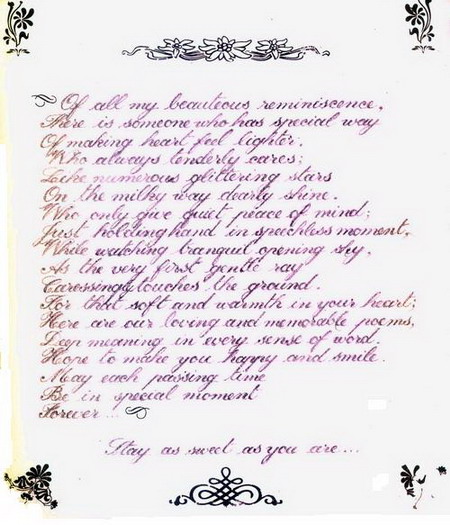 Of all my beauteous reminiscence,
There is someone who has special way
Of making heart feel lighter,
Who always tenderly cares;
Like numerous glittering stars
On the milky way dearly shine.
Who only give quiet peace of mind;
Just holding hand in speechless moment,
While watching tranquil opening sky,
As the very first gentle ray
Caressingly touches the ground.
For that soft and warmth in your heart;
Here are our loving and memorable poems,
Deep meaning in every sense of word.
Hope to make you happy and smile.
May each passing time
Be in special moment
Forever...
Stay as sweet as you are...